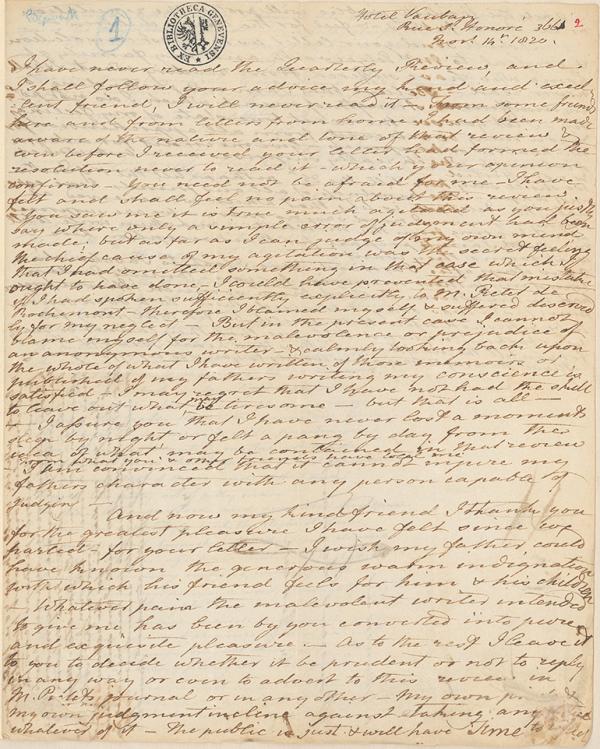 Hotel Vauban
Rue St. Honoré 366
Novr. 14th 1820.
2
1
EX BIBLIOTHECA GENEVENSI
I have never read the Quarterly Review, and
I shall follow your advice my kind and excel
lent friend, I will never read it — From some friends
here and from letters from home I had been made
aware of the nature and tone of that review &
even before I received your letter had formed the
resolution never to read it — which your opinion
confirms — You need not be afraid for me — I have
felt and shall feel no pain about this review.
You saw me it is true much agitated as you justly
say where only a simple error of judgment had been
made; but as far as I can judge of my own mind
the chief cause of my agitation was a secret feeling
that I had omitted something in that case which I
ought to have done, — I could have prevented that mistake
if I had spoken sufficiently explicitly to M. Pictet de
Rochemont — therefore I blamed myself & suffered deserved
ly for my neglect — But in the present case I cannot
blame myself for the malevolence or prejudice of
an anonymous writer — & calmly looking back upon
the whole of what I have written of those memoirs &
published of my fathers writing my conscience is
satisfied — I may regret that I have not had the skill
to leave out what may be tiresome — but that is all —
— I assure you that I have never lost a moments
sleep by night or felt a pang by day from the
idea of what may be contained in that review
from what you & other friends have told me
— I am convinced that it cannot injure my
fathers character with any person capable of
judging
And now my kind friend I thank you
for the greatest pleasure I have felt since we
parted — for your letter — I wish my father could
have known the generous warm indignation
with which his friend feels for him & his children
— Whatever pain the malevolent writer intended
to give me has been by you converted into pure
and exquisite pleasure — As to the rest I leave it
to you to decide whether it be prudent or not to reply
in any way or even to advert to this review in
M. Pictets journal or in any other — My own
my own judgment incline against taking any
whatever of it — The public is just & will have Time to